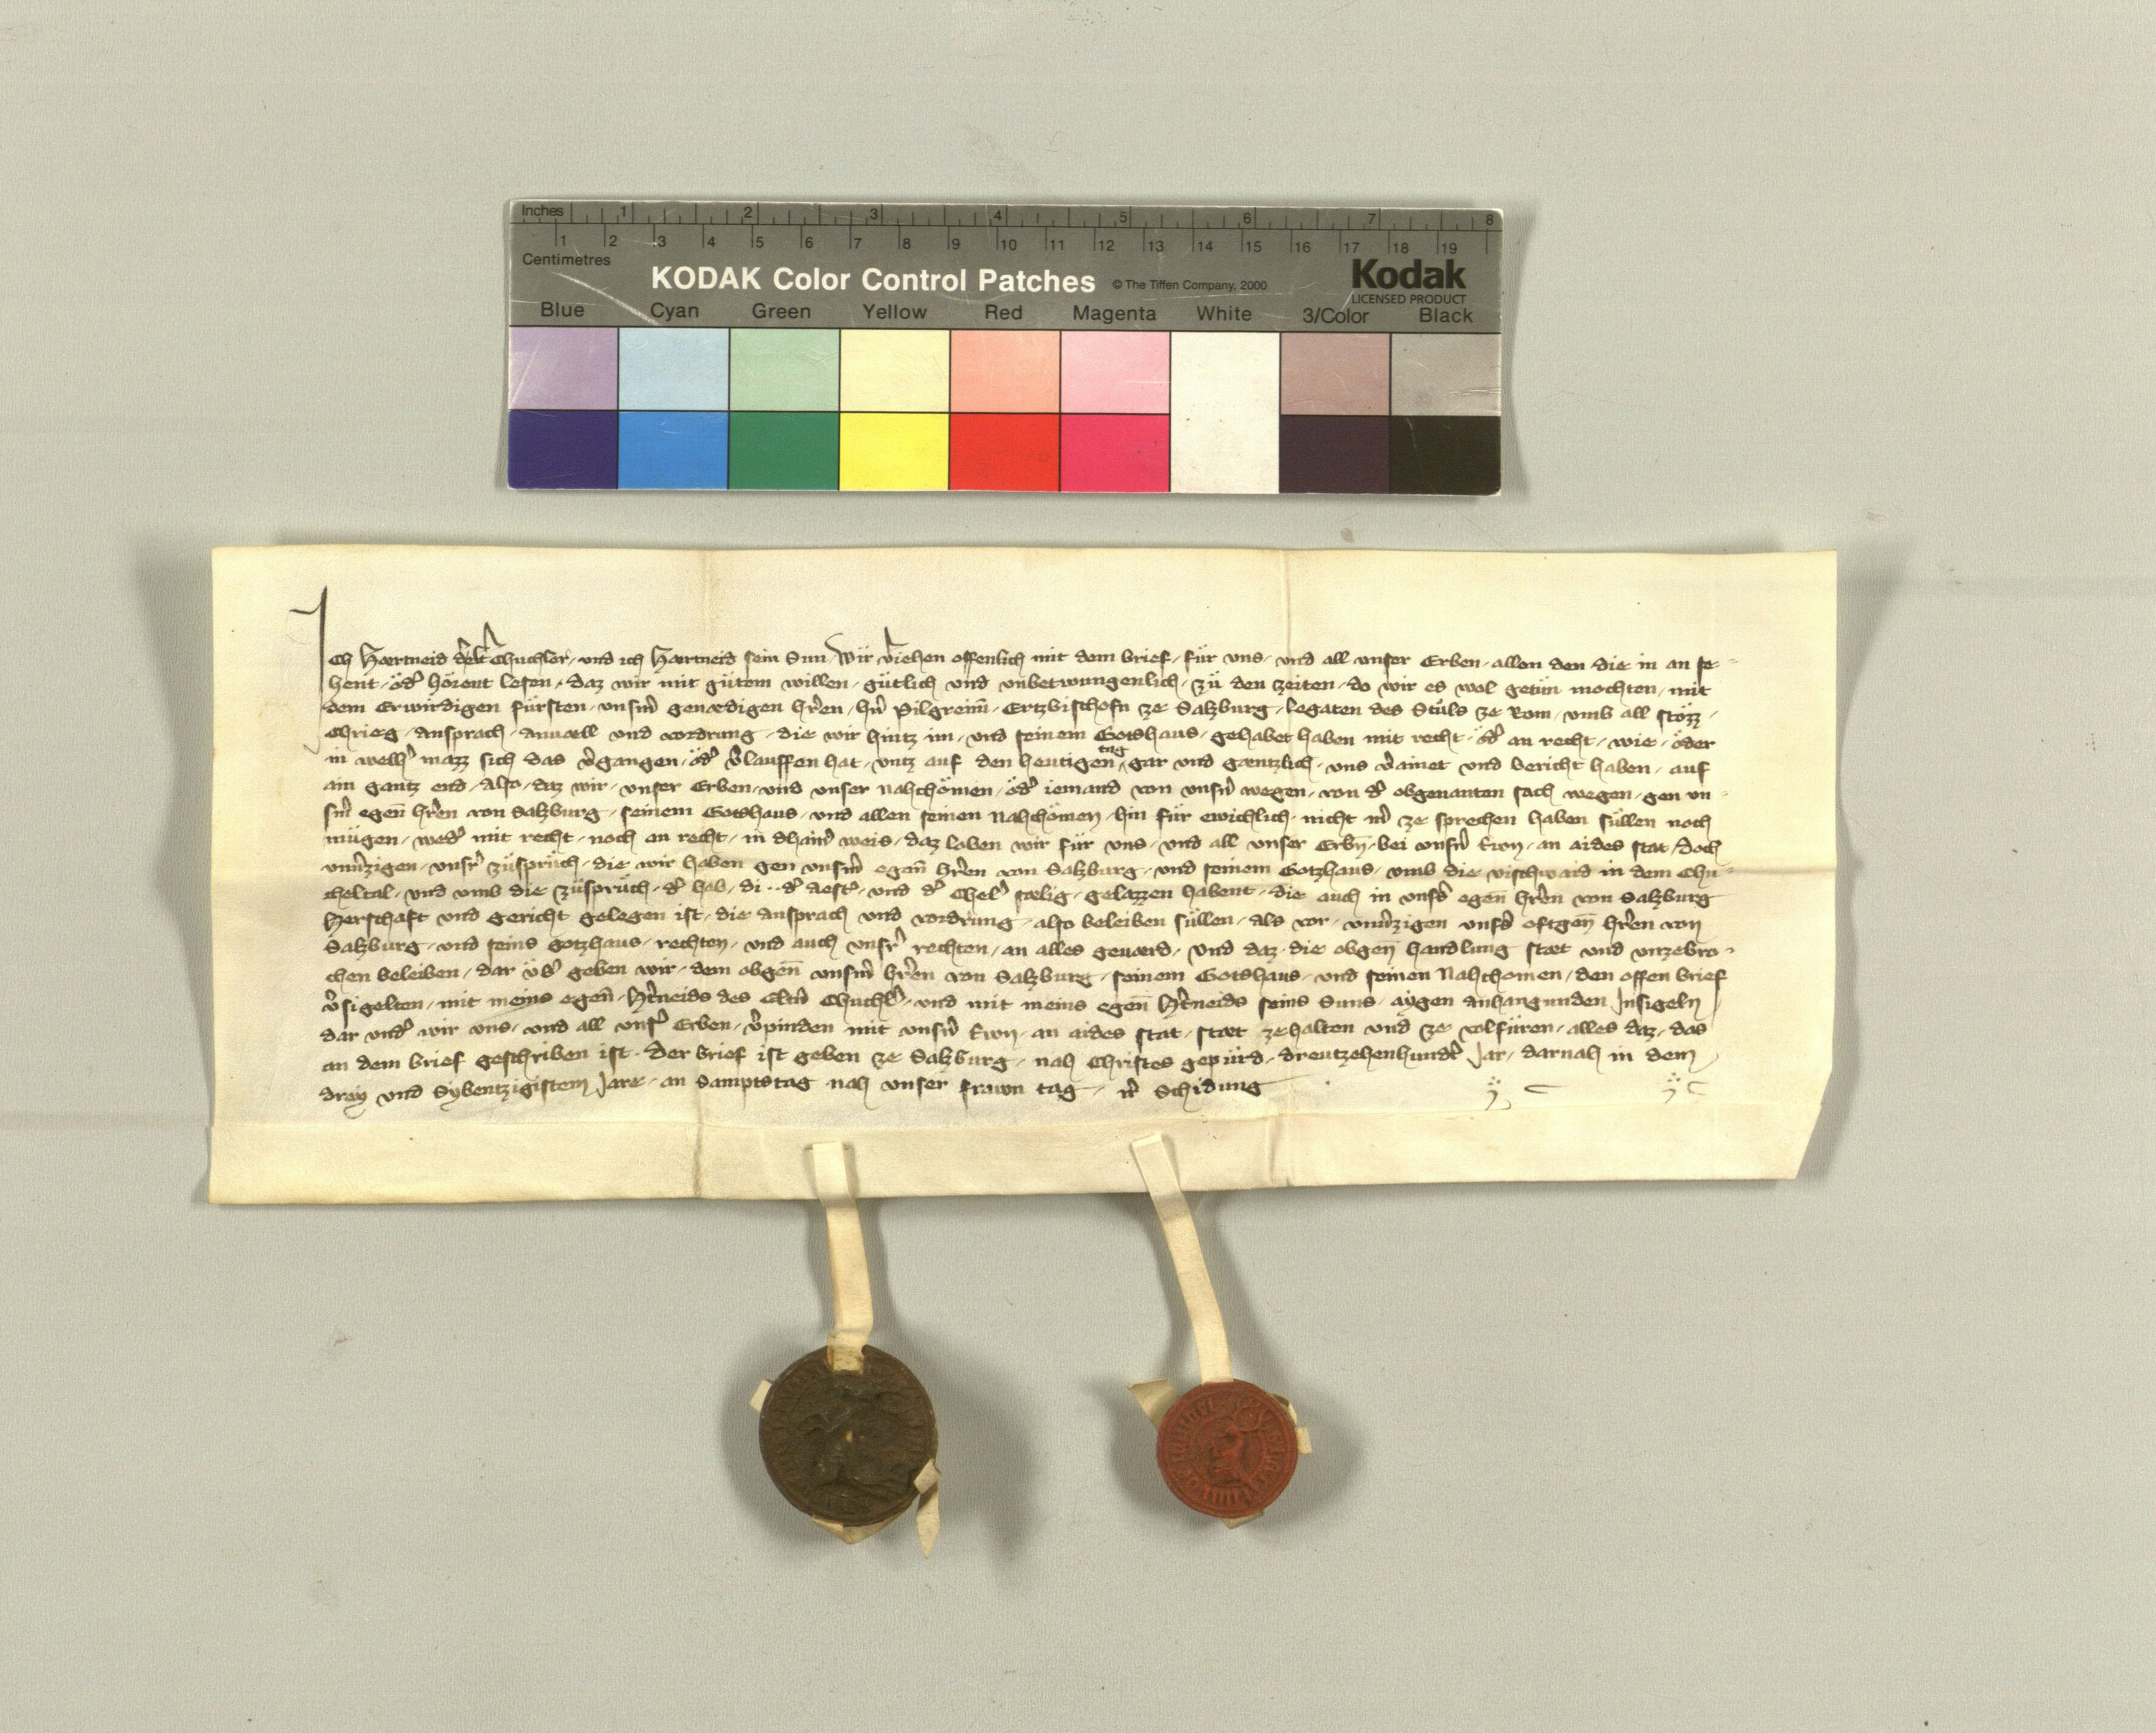 Inches 1 2 3 4 5 6 7 8
1 2 3 4 5 6 7 8 9 10 11 12 13 14 15 16 17 18 19
Centimetres
KODAK Color Control Patches © The Tiffen Company, 2000 Kodak
LICENSED PRODUCT
Blue Cyan Green Yellow Red Magenta White 3/Color Black
Ich Hærtneid Chuchler, und ich Hærtneid sein Sun, Wir v̾iehen offenlich mit dem brief, für uns, und all unser Erben, allen den die in an se-
hent, öd̾ hörent lesen, daz wir mit gütem willen, gütlich und unbetwungenlich, zü den zeiten, do wir es wol getün mochten, mit
dem Erwirdigen fürsten, unsm̾ genædigen hr̾en, hn̾ Pilgreim̄, Ertzbischofn ze Salzburg, legaten des Stůls ze Rom, umb all stözz,
Chrieg, ansprach, anuæll und vordrung, die wir hintz im, und seinem Gotshaus, gehabet haben mit recht, öd̾ an recht, wie, öder
in welh̾ mazz sich das v̾gangen, öd̾ v̾lauffen hat, untz auf den heutigen tag, gar und gæntzlich, uns v̾ainet und bericht haben, auf
ain gantz end, Also, daz wir, unser Erben, und unser nahchömen, öd̾ iemand von unsn̾ wegen, von d̾ obgenanten sach wegen, gen un-
sm̾ egen̄ hr̾en von Salzburg, seinem Gotshaus, und allen seinen nahchömen, hin für ewichlich, nicht m̾ ze sprechen haben süllen noch
mügen, wed̾ mit recht, noch an recht, in dhain̾ weis, daz loben wir für uns, und all unser Erbn̄, bei unsn̾ trwn, an aides stat, doch
unu̾zigen, unsr̾ züsprüch, die wir haben gen unsm̾ egen̄ hr̾en von Salzburg, und seinem Gotzhaus, umb die vischwaid in dem Chu-
cheltal, und umb die züsprüch, d̾ hab, di.. d̾ und d̾ sælig, gelazzen habent, die auch in unss̾ egen̄ hr̾en von Salzburg
Herschaft und gericht gelegen ist, die ansprach und vordrung, also beleiben süllen, als vor, unu̾zigen unss̾ oftgen̄ hr̾en von
Salzburg, und seins gotzhaus, rechten, und auch unsr̾ rechten, an alles geuærd, Und daz, die obgen̄ handlung stæt und unzebro-
chen beleiben, dar üb̾ geben wir, dem obgen̄ unsm̾ hr̾en von Salzburg, seinem Gotshaus, und seinen Nahchomen, den offen brief
v̾sigelten, mit meins egen̄, Ht̾neids des Eltn̾ Chuchl̾, und mit meins egen̄ Ht̾neids seins Suns, aygen anhangunden Insigeln,
dar und̾ wir uns, und all unsr̾ Erben, v̾pinden mit unsn̾ trwn, an aides stat, stæt ze halten und ze volfüren, alles daz, das
an dem brief geschriben ist. Der brief ist geben ze Salzburg, nah Christes gepürd, dreutzehenhundt̾ Jar, darnah in dem
drey und Sybentzigistem Jare, an Samptstag nah unser frawn tag, ir̾ Schidung